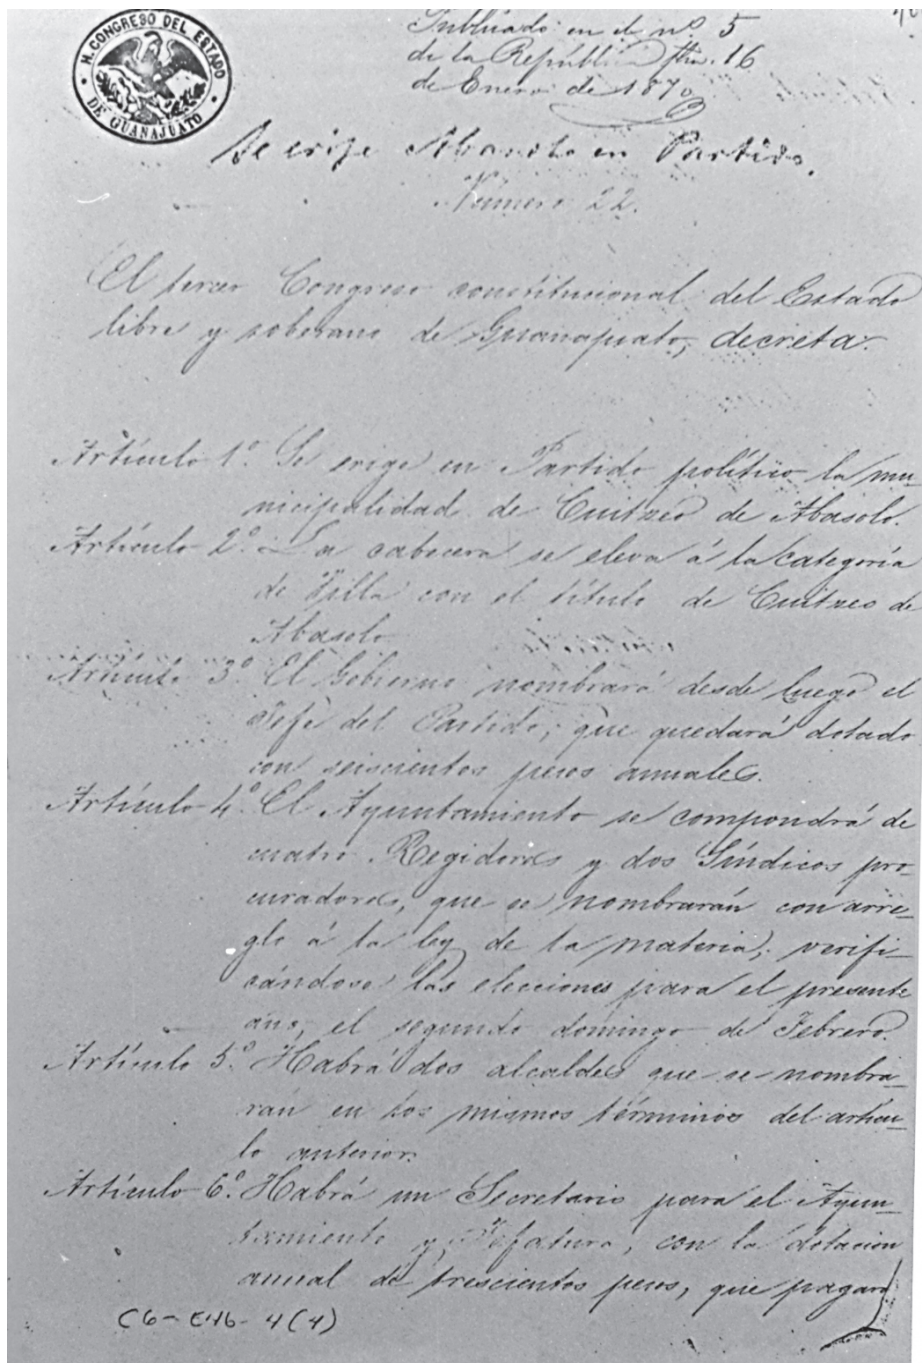 H. CONGRESO DEL ESTADO
DE GUANAJUATO
Publicado en el nº 5
de la República fha. 16
de Enero de 1870
Se erige Abasolo en Partido.
Número 22.
El tercer Congreso constitucional del Estado
libre y soberano de Guanajuato, decreta.
Artículo 1º. Se erige en Partido político la mu-
nicipalidad de Cuitzeo de Abasolo.
Artículo 2º. La cabecera se eleva á la categoría
de Villa con el título de Cuitzeo de
Abasolo
Artículo 3º. El Gobierno nombrará desde luego el
Jefe del Partido, que quedará dotado
con seiscientos pesos anuales.
Artículo 4º. El Ayuntamiento se compondrá de
cuatro Regidores y dos Síndicos pro-
curadores, que se nombrarán con arre-
glo á la ley de la materia; verifi-
cándose las elecciones para el presente
año, el segundo domingo de Febrero.
Artículo 5º. Habrá dos alcaldes que se nombra-
rán en los mismos términos del artícu-
lo anterior.
Artículo 6º. Habrá un Secretario para el Ayun-
tamiento y Jefatura, con la dotación
anual de trescientos pesos, que pagará
C6-E46-4(4)